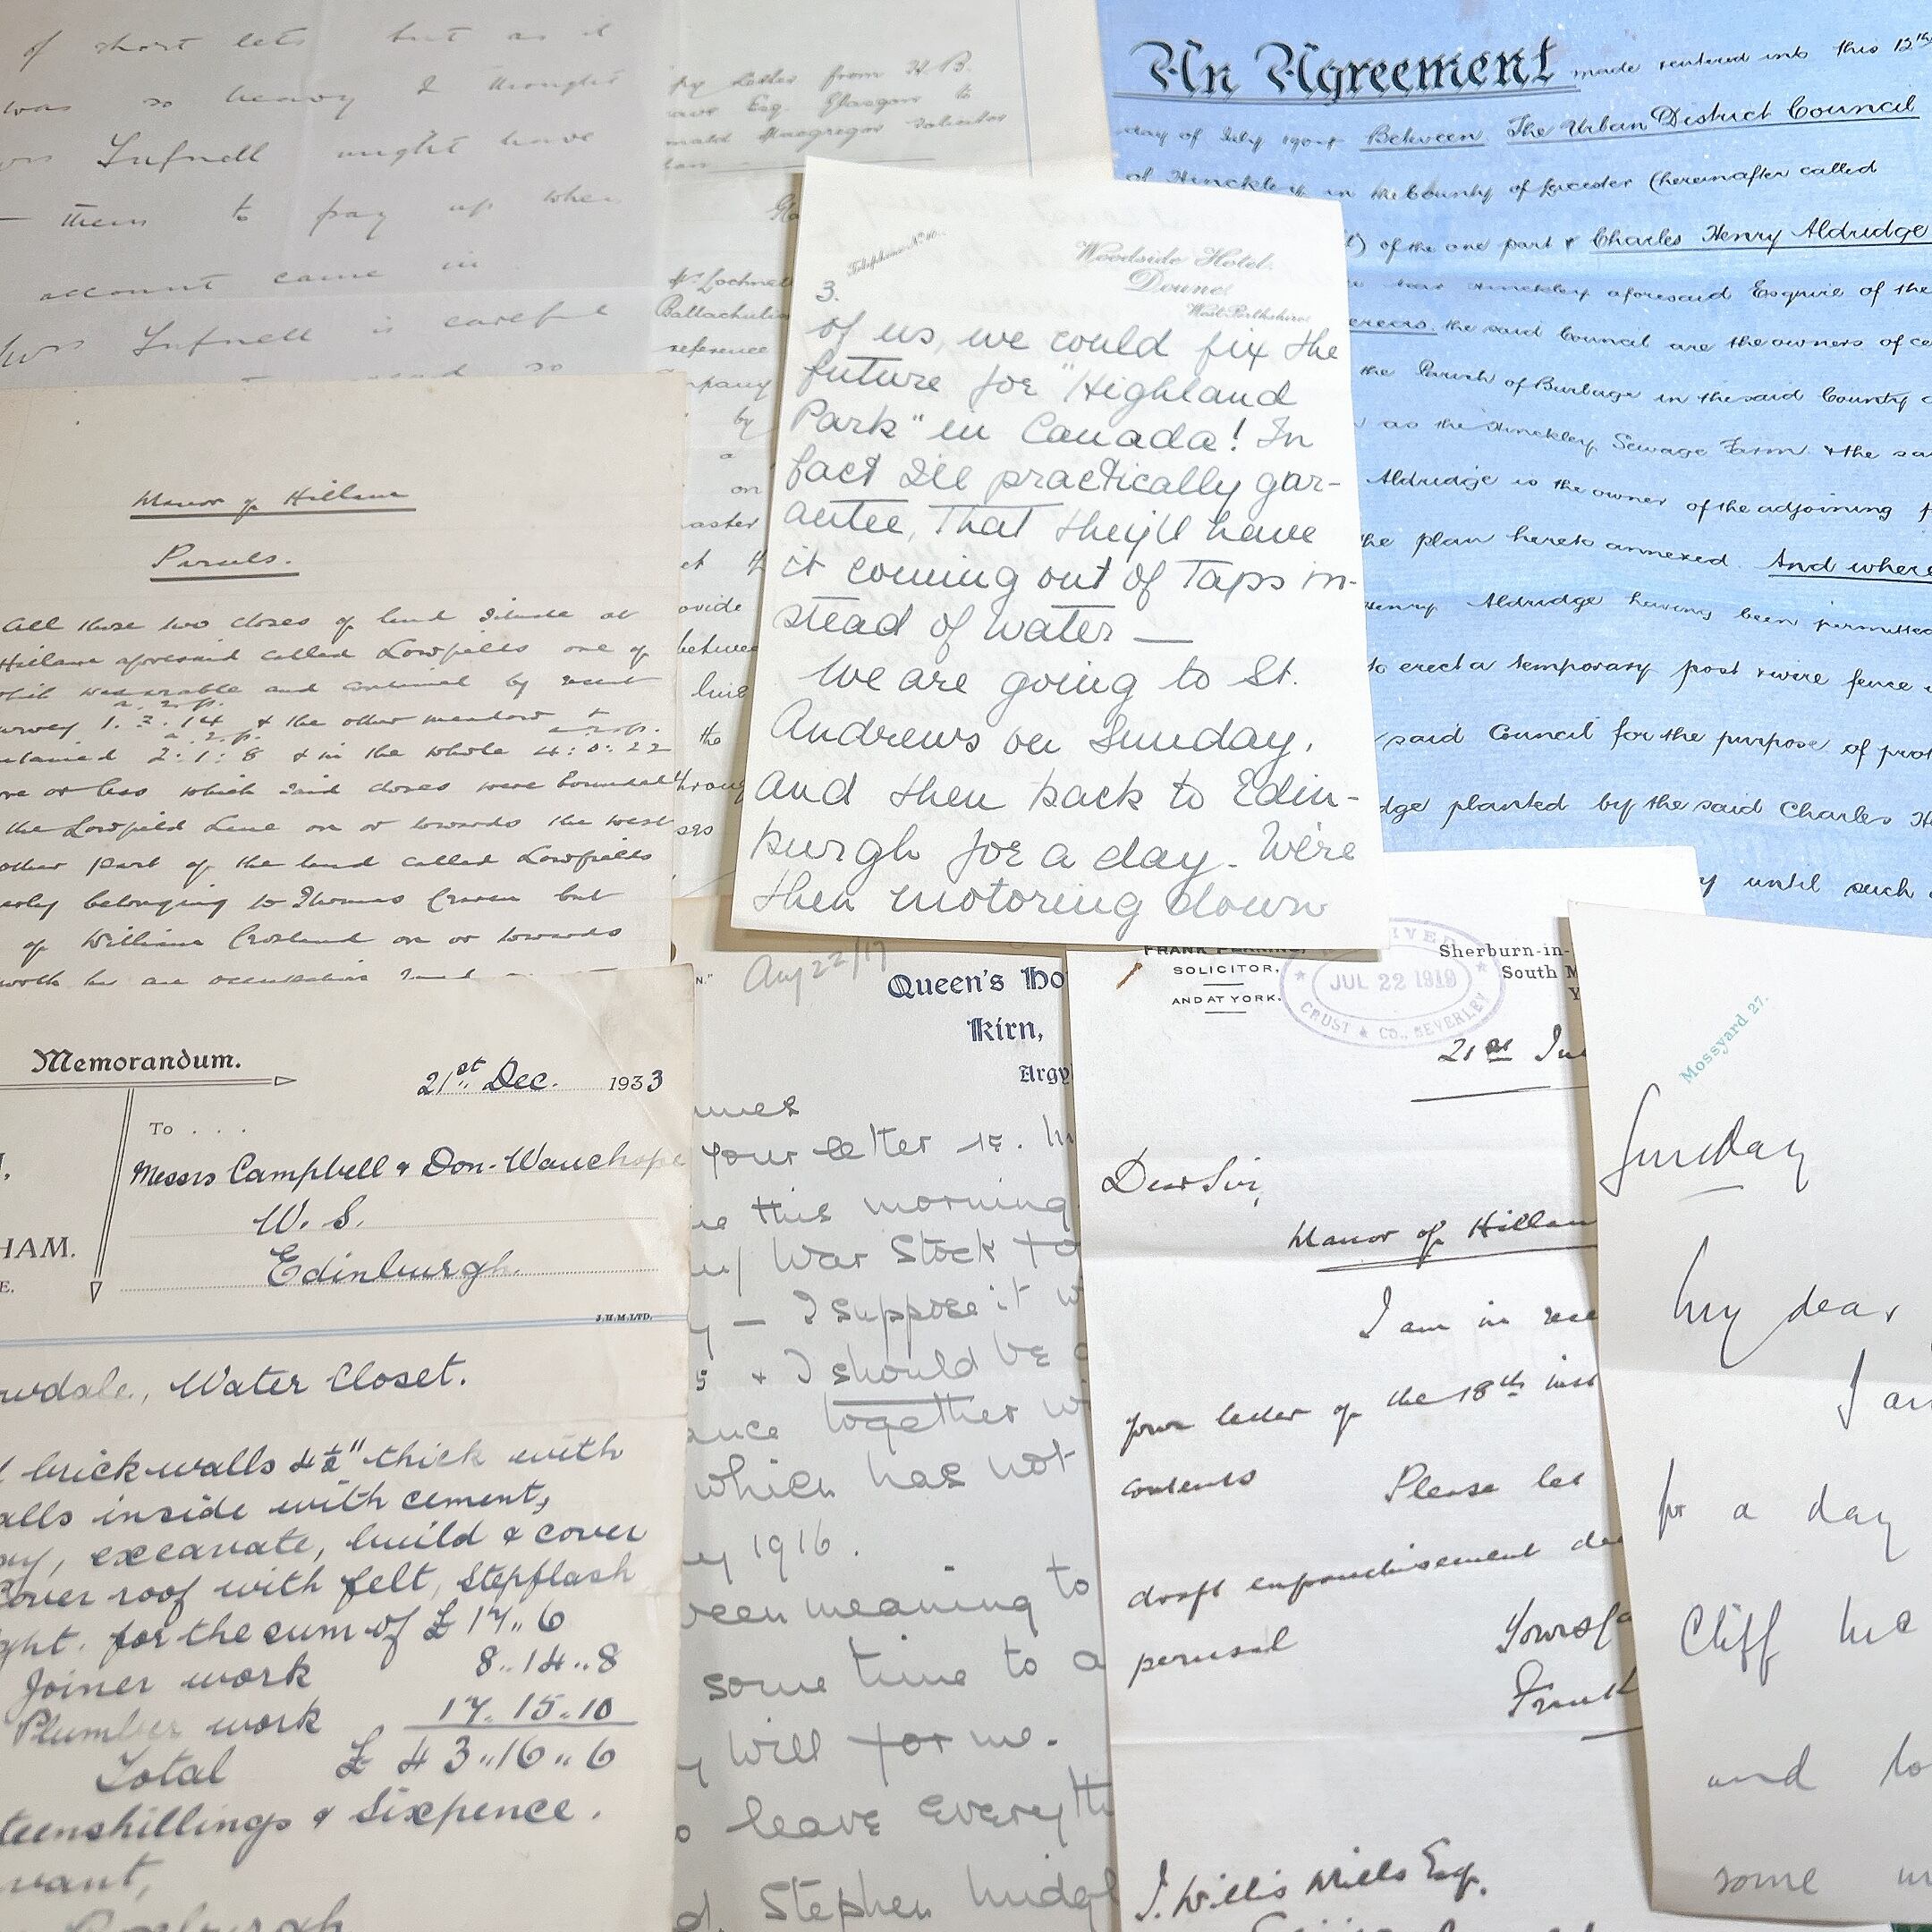 of short lets but as it
was so heavy I thought
Tufnell might have
them to pay up when
account came in
Tufnell is careful
so
Letter from H.B.
Esq. Glasgow to
Macgregor Solicitor
Ballachulis
reference
by
a
on
the
An Agreement made & entered into this 12th
day of July 1904 Between The Urban District Council
of Hinckley in the County of Leicester (hereinafter called
of the one part & Charles Henry Aldridge
Hinckley aforesaid Esquire of the
the said Council are the owners of
the Parish of Burbage in the said County
as the Hinckley Sewage Farm & the
Aldridge is the owner of the adjoining
the plan hereto annexed. And where
Henry Aldridge having been permitted
to erect a temporary post & wire fence
said Council for the purpose of
planted by the said Charles
until such
Woodside Hotel.
Doune
West Perthshire
3.
of us, we could fix the
future for "Highland
Park" in Canada! In
fact I'll practically gar-
antee, that they'll have
it coming out of Taps in-
stead of water —
We are going to St.
Andrews on Sunday,
And then back to Edin-
burgh for a day. We're
then motoring down
Manor of Hillam
Parcels.
All those two closes of land situate at
Hillam aforesaid called Lowfields one of
which was arable and contained by recent
survey 1. 3. 14 & the other meadow &
contained 2: 1: 8 & in the whole 4: 0: 22
more or less which said closes were bounded
the Lowfield Lane on or towards the west
other part of the land called Lowfields
belonging to Thomas but
of William Crosland on or towards
Memorandum.
21st Dec. 1933
To . . .
Messrs Campbell & Don-Wauchope
W. S.
Edinburgh.
HAM.
J.H.M.LTD.
Water Closet.
brick walls 4½" thick with
walls inside with cement,
excavate, build & cover
Cover roof with felt, stepflash
for the sum of £ 17 .. 6
Joiner work 8..14..8
Plumber work 17. 15.10
Total £ 43..16..6
teenshillings & Sixpence.
Aug 22/17
Queen's Ho
Kirn,
Argy
your letter
this morning
War Stock to
— I suppose it
& I should be
together
which has not
1916.
been meaning to
some time to a
will for me.
leave everyth
Stephen
SOLICITOR,
AND AT YORK.
JUL 22 1919
CRUST & CO., BEVERLEY
Sherburn-in-
South M
Y
21st Ju
Dear Sir,
Manor of Hillam
I am in rece
your letter of the 18th inst
contents Please let
draft enfranchisement dee
perusal
Yours fa
Frank
J. Willis Mills Esq.
Mossyard 27.
Sunday
My dear
I am
for a day
Cliff
and to
some